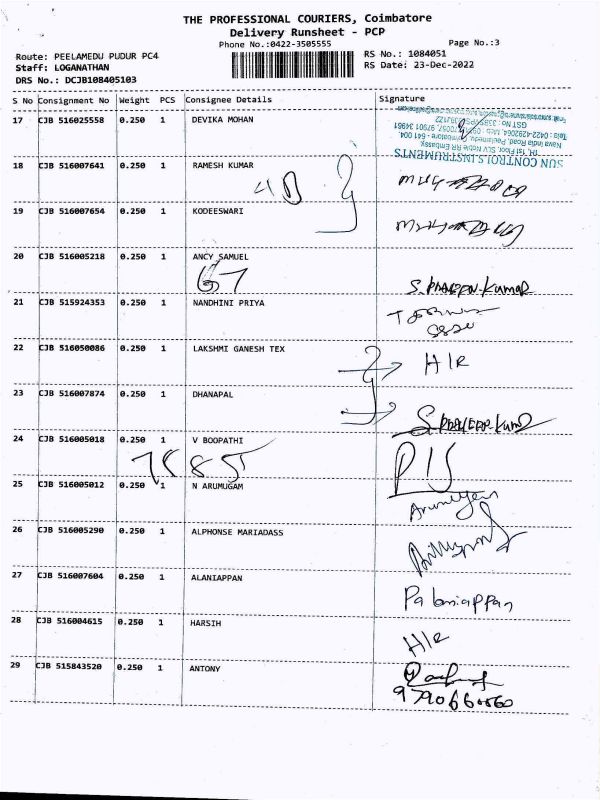 THE PROFESSIONAL COURIERS, Coimbatore
Delivery Runsheet - PCP
Phone No.:0422-3505555
Page No.:3
Route: PEELAMEDU PUDUR PC4
Staff: LOGANATHAN
DRS No.: DCJB108405103
RS No.: 1084051
RS Date: 23-Dec-2022
S No Consignment No Weight PCS Consignee Details Signature
17 CJB 516025558 0.250 1 DEVIKA MOHAN
SUN CONTROLS INSTRUMENTS
18 CJB 516007641 0.250 1 RAMESH KUMAR
19 CJB 516007654 0.250 1 KODEESWARI
20 CJB 516005218 0.250 1 ANCY SAMUEL
67
S. PRAVEEN-KUMAR
21 CJB 515924353 0.250 1 NANDHINI PRIYA
22 CJB 516050086 0.250 1 LAKSHMI GANESH TEX
H/R
23 CJB 516007874 0.250 1 DHANAPAL
24 CJB 516005018 0.250 1 V BOOPATHI
7885
25 CJB 516005012 0.250 1 N ARUMUGAM
Arumugam
26 CJB 516005290 0.250 1 ALPHONSE MARIADASS
27 CJB 516007604 0.250 1 ALANIAPPAN
Palaniappan
28 CJB 516004615 0.250 1 HARSIH
H/R
29 CJB 515843520 0.250 1 ANTONY